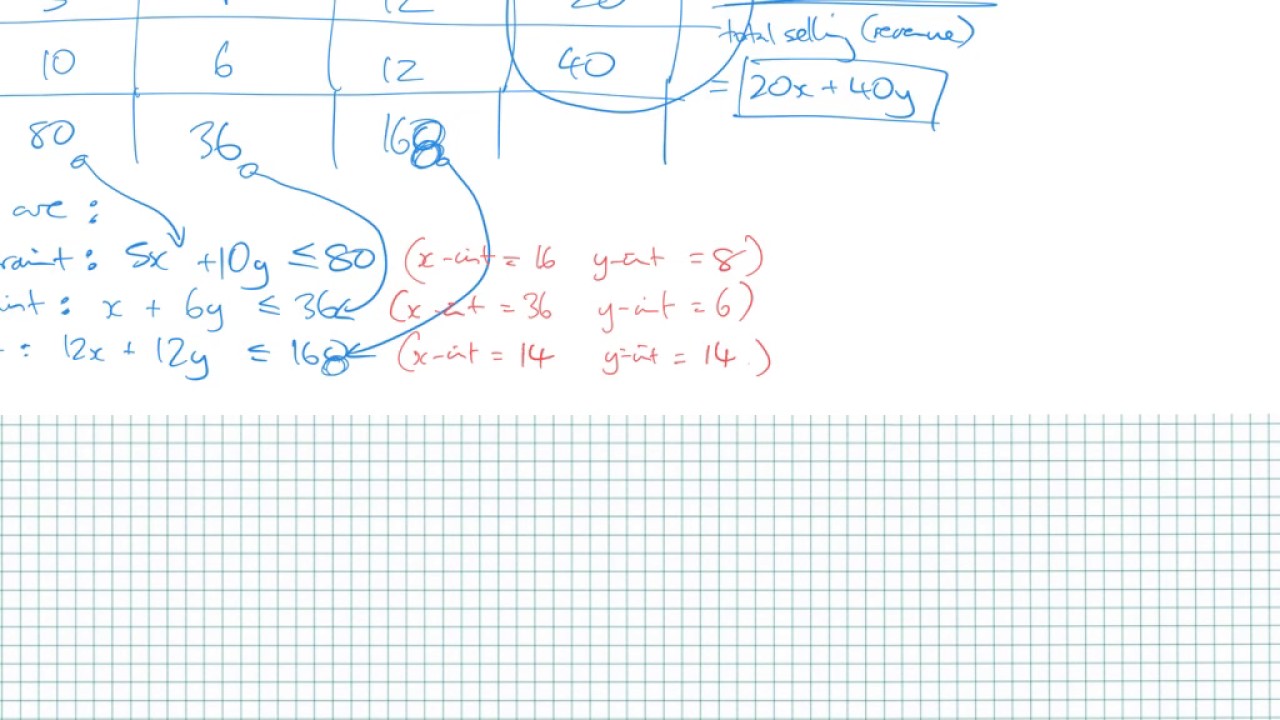 total selling (revenue)
10 6 12 40
= 20x + 40y
80 36 168
are :
raint : 5x + 10y ≤ 80 (x-int = 16 y-int = 8)
int : x + 6y ≤ 36 (x-int = 36 y-int = 6)
: 12x + 12y ≤ 168 (x-int = 14 y-int = 14.)